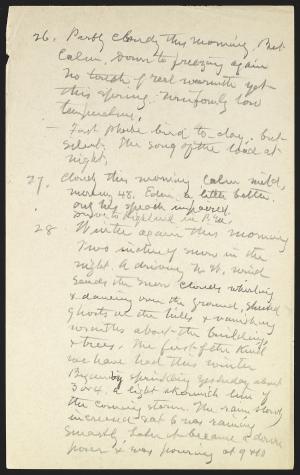 26. Partly cloudy this morning. But
Calm. Down to freezing again
No touch of real warmth yet
this spring. Uniformly low
temperature,
— First Phoebe bird to-day, but
Silent. The song of the toad at
night,
27. Cloudy this morning Calm mild,
morning 48. Eden a little better.
only his speech impaired.
Drove to Highland in P.M.
28 Winter again this morning
Two inches of snow in the
night. A driving N.W. wind
sends the snow clouds whirling
& dancing over the ground, sheeted
ghosts at the hills & vanishing
wraiths about the buildings
& trees. The first of the kind
we have had this winter
Began by sprinkling yesterday about
3 or 4. a light skirmish line of
the coming storm. The rain slowly
increased - at 6 was raining
smartly, later it became a down
pour & was pouring at 9 &10